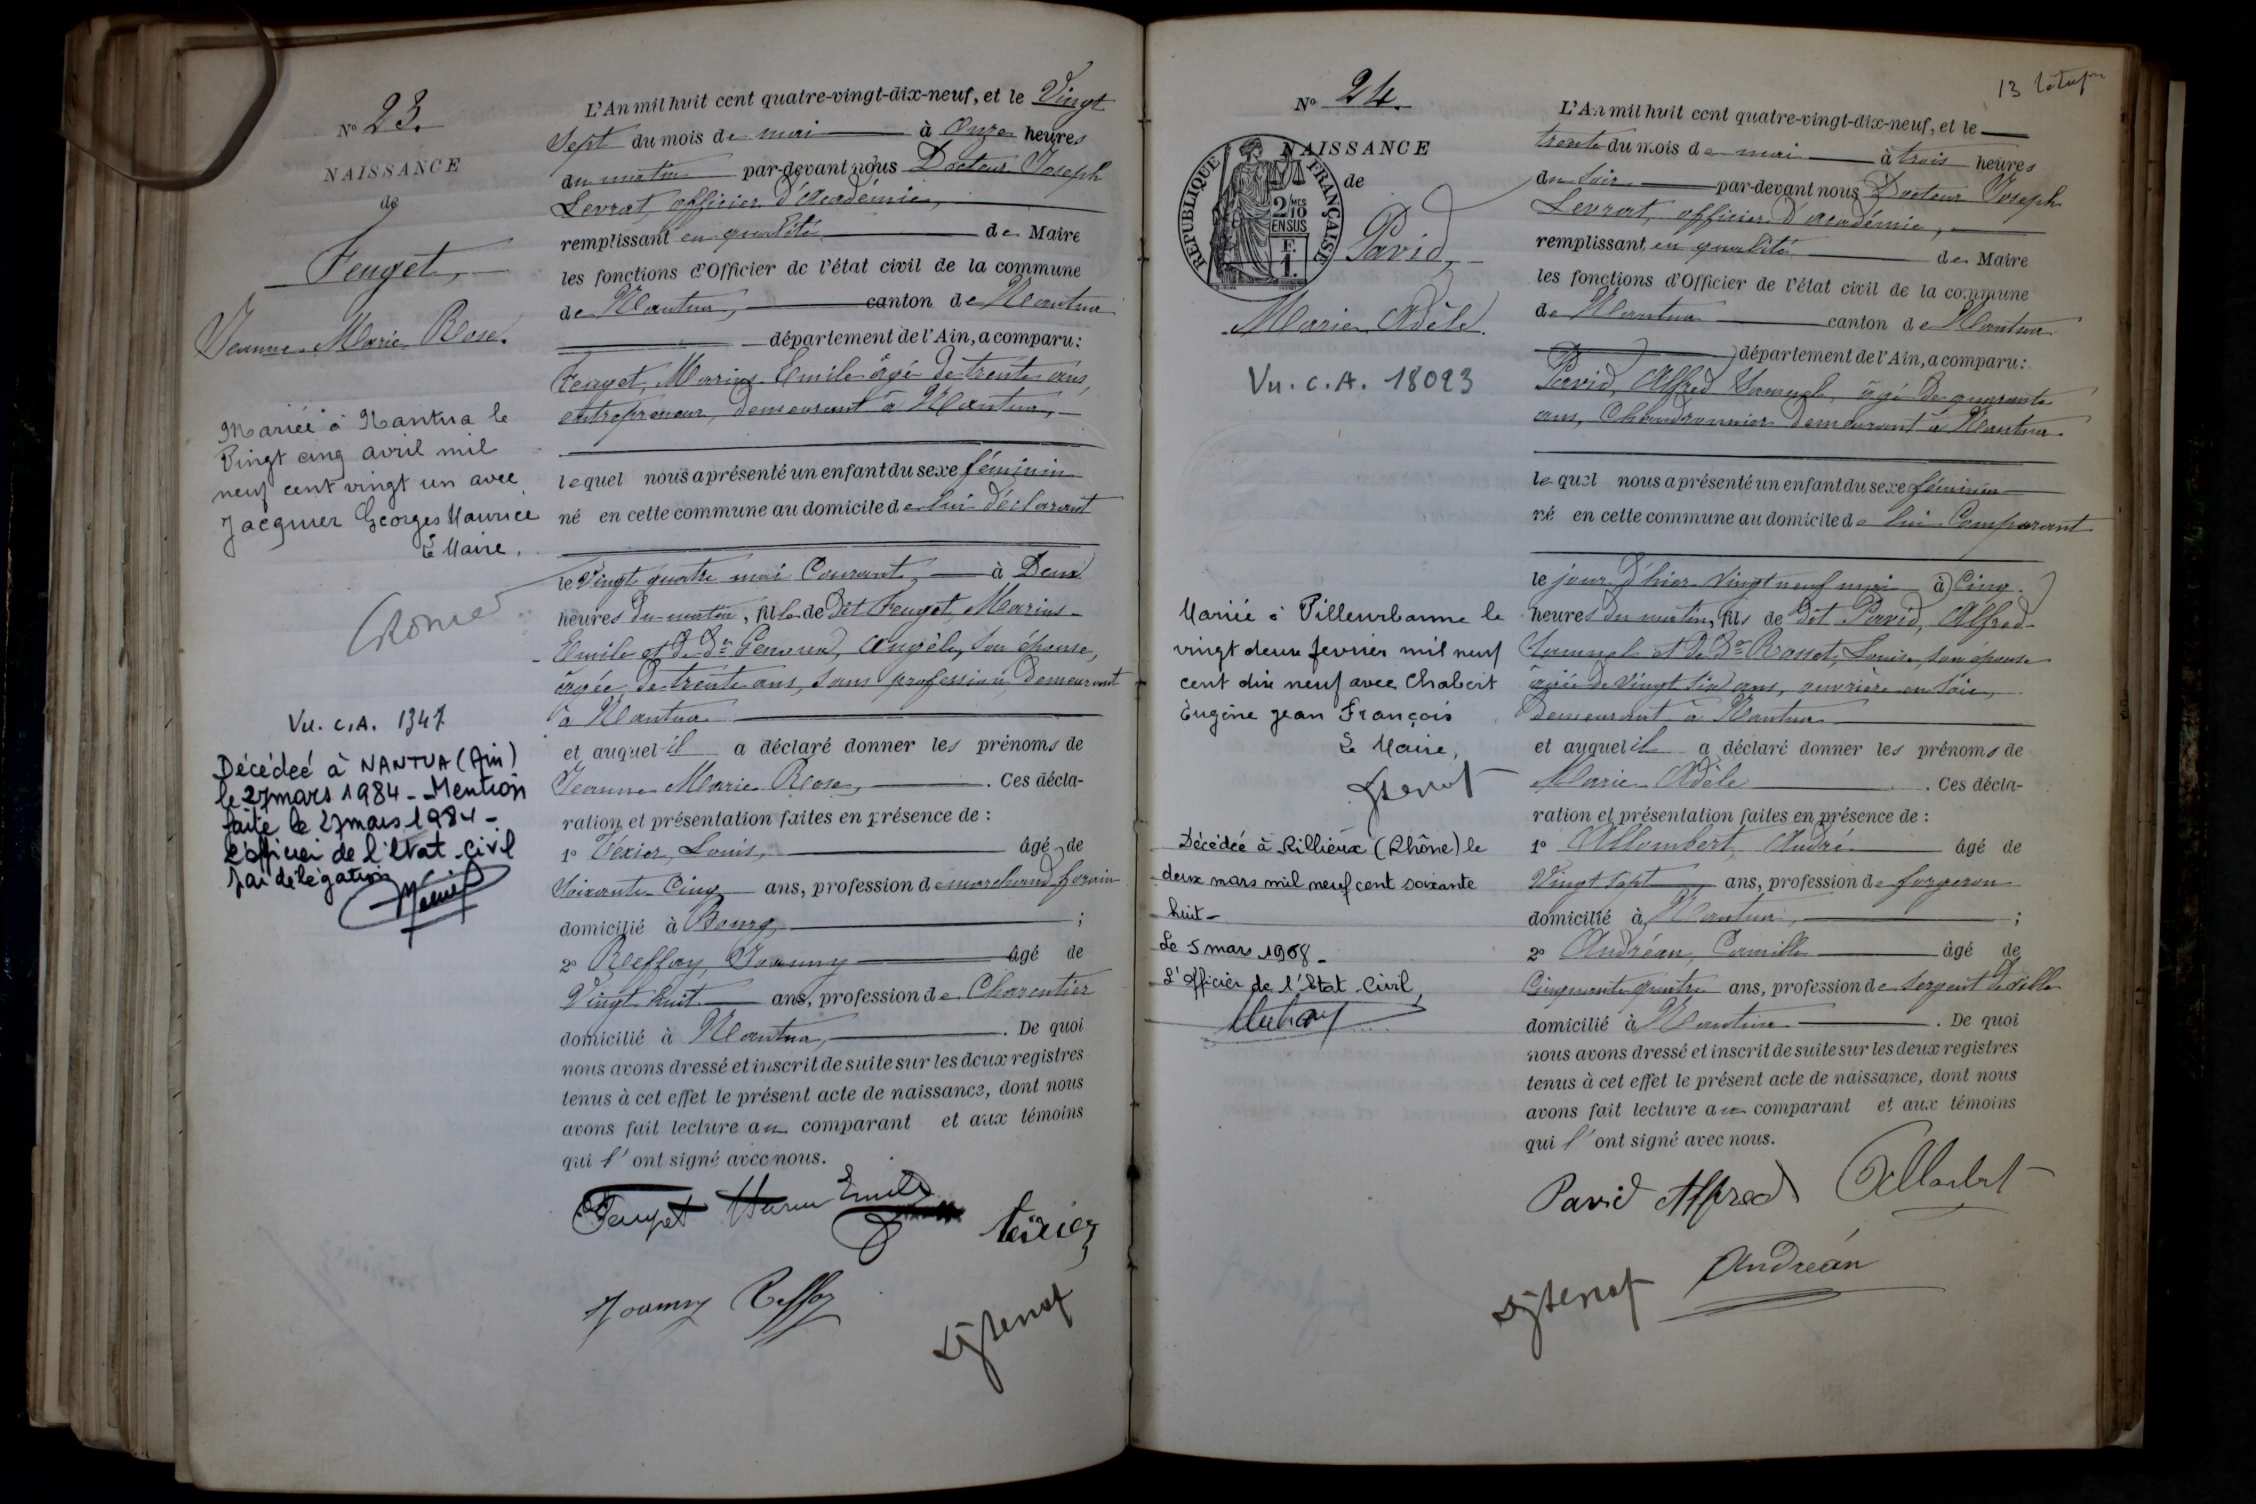 N° 23.
NAISSANCE
de
Fenget,
Jeanne Marie Rose.
Mariée à Nantua le
Vingt cinq avril mil
neuf cent vingt un avec
Jacquier Georges Maurice
Le Maire,
Vu. C.A. 1347
Décédée à NANTUA (Ain)
le 27 mars 1984 - Mention
faite le 27 mars 1984 -
L'officier de l'Etat-Civil
par délégation
L'An mil huit cent quatre-vingt-dix-neuf, et le Vingt
Sept du mois de mai à Onze heures
du matin par-devant nous Docteur Joseph
Levrat, officier d'Académie,
remplissant en qualité de Maire
les fonctions d'Officier de l'état civil de la commune
de Nantua, canton de Nantua
département de l'Ain, a comparu:
Fenget, Marius Emile âgé de trente ans,
entrepreneur, demeurant à Nantua,
lequel nous a présenté un enfant du sexe féminin
né en cette commune au domicile de lui déclarant
le Vingt quatre mai Courant, à Deux
heures du matin, fille de dit Fenget, Marius
Emile et de De Angèle, son épouse,
âgée de trente ans, sans profession, demeurant
à Nantua
et auquel il a déclaré donner les prénoms de
Jeanne Marie Rose, . Ces décla-
ration et présentation faites en présence de :
1° Téxier, Louis, âgé de
Soixante Cinq ans, profession de marchand forain
domicilié à Bourg, ;
2° Reffay, Joanny âgé de
Vingt huit ans, profession de Charentier
domicilié à Nantua, . De quoi
nous avons dressé et inscrit de suite sur les deux registres
tenus à cet effet le présent acte de naissance, dont nous
avons fait lecture au comparant et aux témoins
qui l'ont signé avec nous.
Fenget Marius Emile
Téxier
Joanny Reffay
13
N° 24.
NAISSANCE
de
REPUBLIQUE FRANÇAISE
2/10 MES
EN SUS
F.
1.
Pavid,
Marie Adèle.
Vu. C.A. 18023
Mariée à Villeurbanne le
vingt deux fevrier mil neuf
cent dix neuf avec Chabert
Eugène Jean François
Le Maire,
Décédée à Rillieux (Rhône) le
deux mars mil neuf cent soixante
huit -
Le 5 mars 1968 -
L'Officier de l'Etat-Civil,
L'An mil huit cent quatre-vingt-dix-neuf, et le
trente du mois de mai à trois heures
du soir par-devant nous Docteur Joseph
Levrat, officier d'académie,
remplissant en qualité de Maire
les fonctions d'Officier de l'état civil de la commune
de Nantua canton de Nantua
département de l'Ain, a comparu:
Pavid, Alfred Samuel, âgé de quarante
ans, Chaudronnier demeurant à Nantua
lequel nous a présenté un enfant du sexe féminin
né en cette commune au domicile de lui Comparant
le jour d'hier Vingt neuf mai à Cinq
heures du matin, fils de dit Pavid, Alfred
Samuel et de De Louise, son épouse
âgée de vingt six ans, ouvrière en soie,
demeurant à Nantua
et auquel il a déclaré donner les prénoms de
Marie Adèle . Ces décla-
ration et présentation faites en présence de :
1° Allombert, André âgé de
Vingt sept ans, profession de forgeron
domicilié à Nantua, ;
2° Andréan, Camille âgé de
Cinquante quatre ans, profession de sergent de ville
domicilié à Nantua . De quoi
nous avons dressé et inscrit de suite sur les deux registres
tenus à cet effet le présent acte de naissance, dont nous
avons fait lecture au comparant et aux témoins
qui l'ont signé avec nous.
Pavid Alfred
Andréan